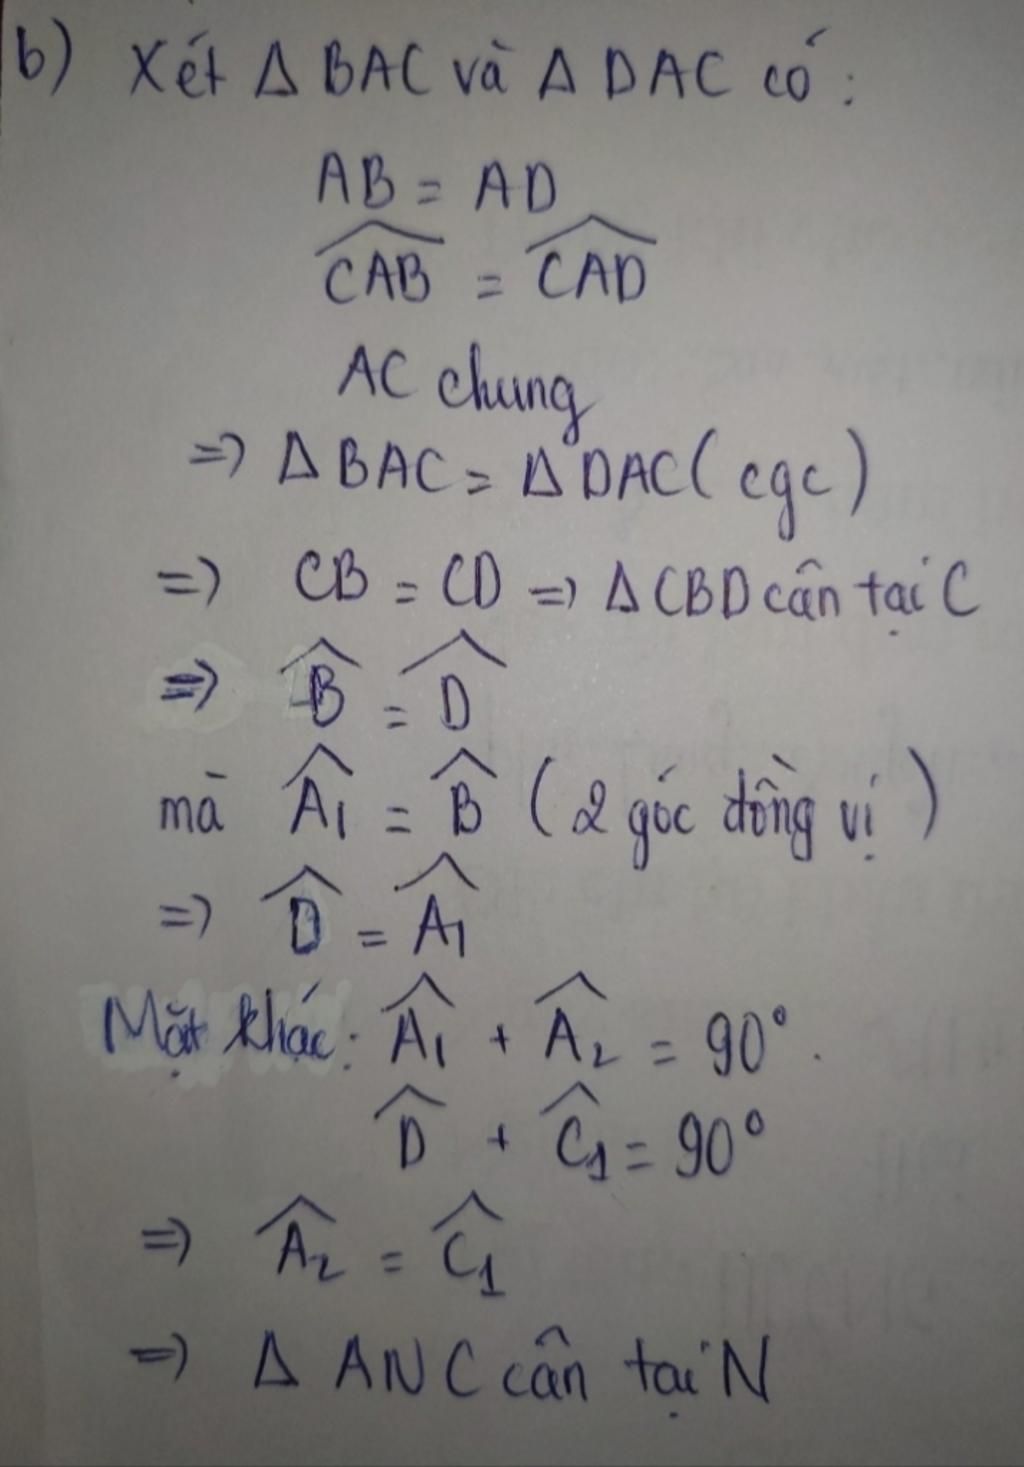 b) Xét Δ BAC và Δ DAC có :
AB = AD
\widehat{CAB} = \widehat{CAD}
AC chung
=> Δ BAC = Δ DAC ( cgc )
=> CB = CD => Δ CBD cân tại C
=> \widehat{B} = \widehat{D}
mà \widehat{A_1} = \widehat{B} ( 2 góc đồng vị )
=> \widehat{D} = \widehat{A_1}
Mặt khác: \widehat{A_1} + \widehat{A_2} = 90° .
\widehat{D} + \widehat{C_1} = 90°
=> \widehat{A_2} = \widehat{C_1}
=> Δ ANC cân tại N